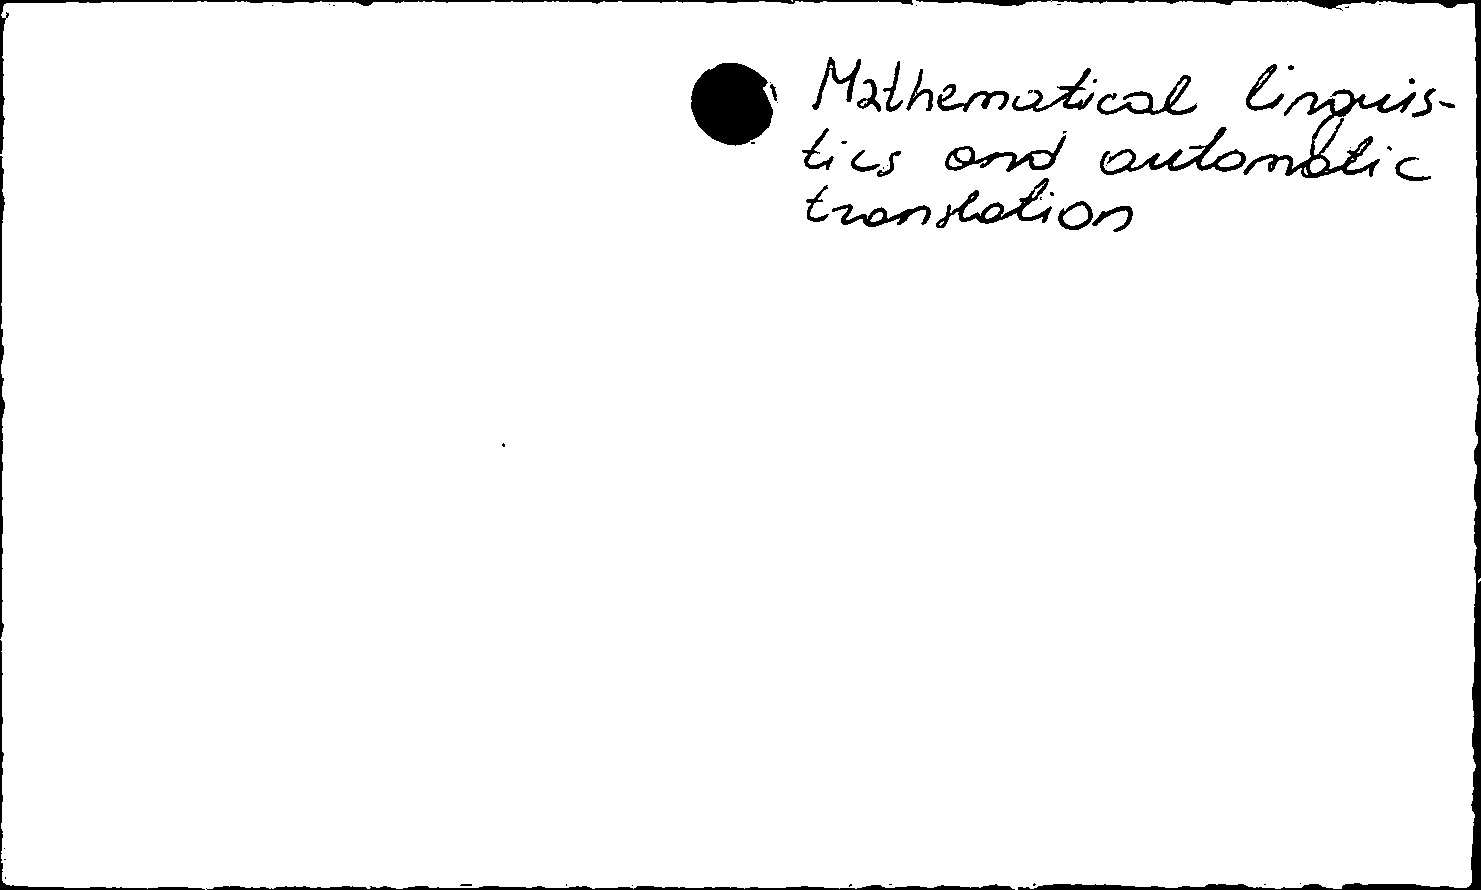 Mathematical linguis-
tics and automatic
translation